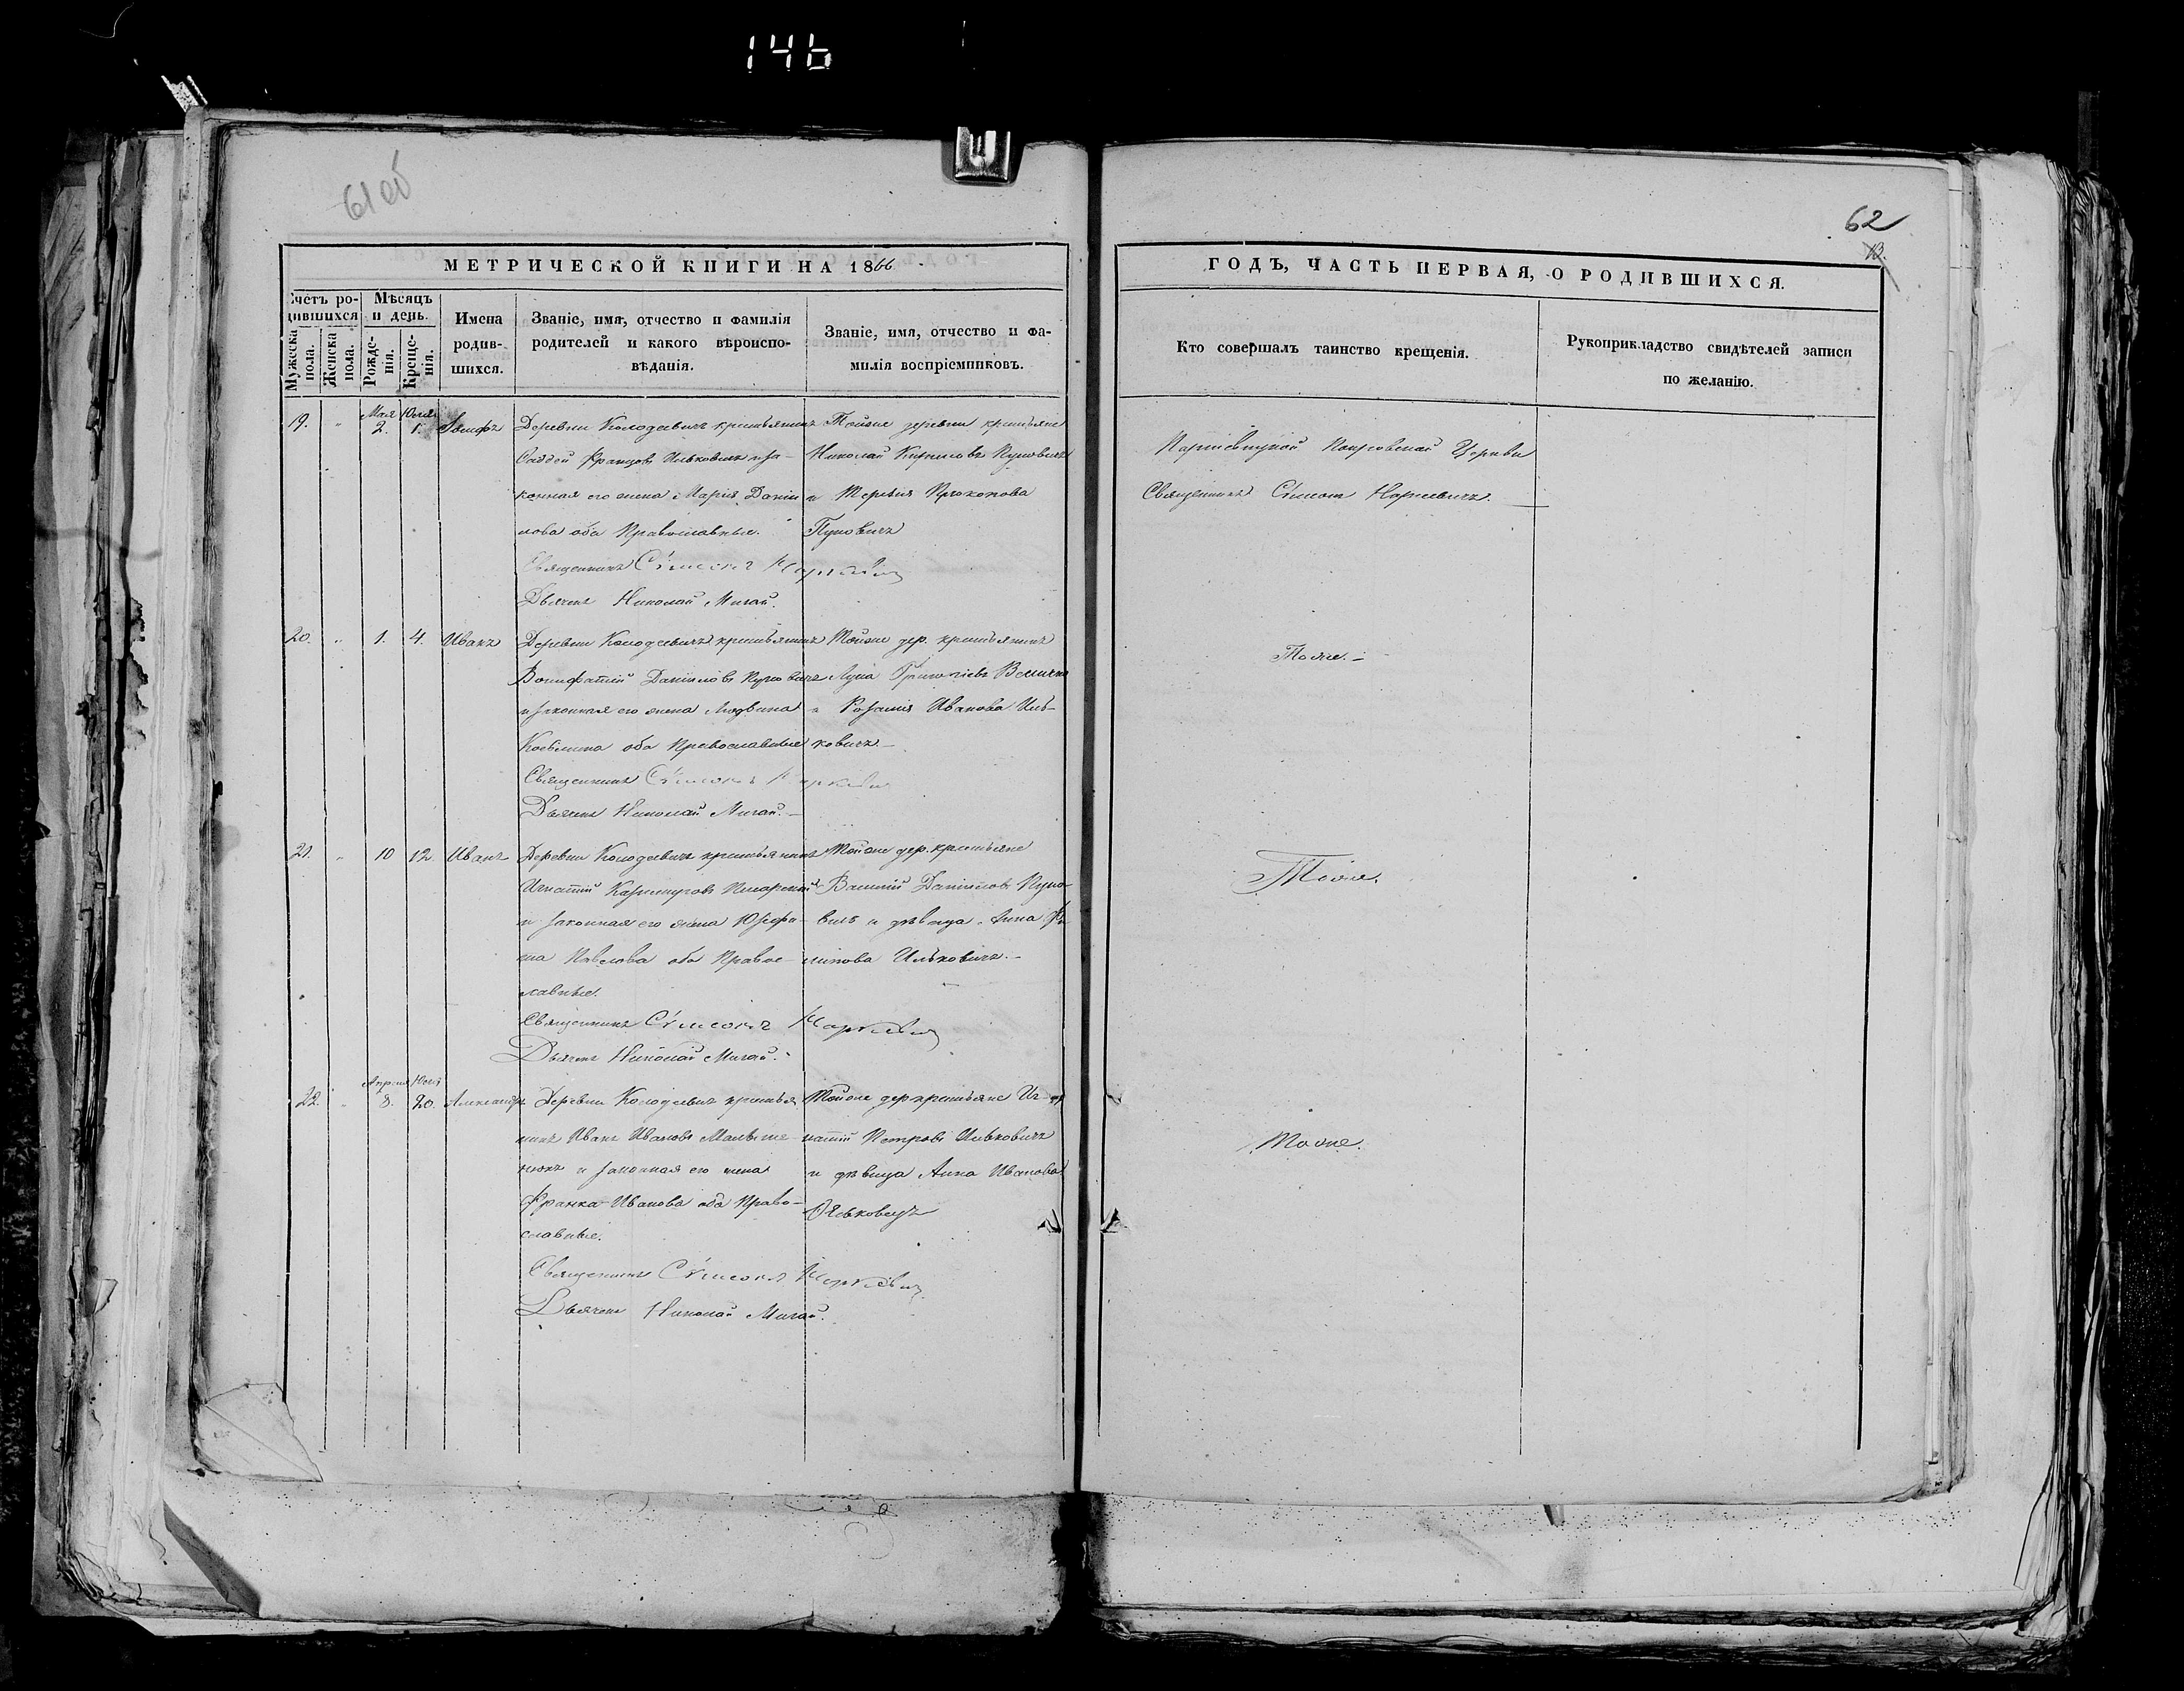 146
61 об
62
13.
МЕТРИЧЕСКОЙ КНИГИ НА 1866
ГОДЪ, ЧАСТЬ ПЕРВАЯ, О РОДИВШИХСЯ.
Счетъ родившихся
Мужеска пола.
Женска пола.
Мѣсяцъ и день.
Рожденія.
Крещенія.
Имена родившихся.
Званіе, имя, отчество и фамилія
родителей и какого вѣроиспо-
вѣданія.
Званіе, имя, отчество и фа-
милія воспріемниковъ.
Кто совершалъ таинство крещенія.
Рукоприкладство свидѣтелей записи
по желанію.
19. " Мая 2. 1. Іосифъ
Деревни Колодеевичъ крестьянинъ
Фаддей Францовъ Ильковичъ и за-
конная его жена Марія Даніи
лова оба Православные.
Священникъ Сѵмеонъ
Дьячекъ Николай Мигай.
Тойже деревни крестьяне
Николай Кириловъ
и Прокопова
Священникъ Сѵмеон
20. " 1. 4. Иванъ
Деревни Колодеевичъ крестьянинъ
Вонифатій Даніиловъ
и законная его жена Людвина
оба Православные
Священникъ Сѵмеонъ
Дьячекъ Николай Мигай.
Тойже дер. крестьянинъ
Лука Григоріевъ Величко
и Розалія Иванова Иль-
ковичъ.
Тоже.
21. " 10 12. Иванъ
Деревни Колодеевичъ крестьянинъ
Игнатій Казимировъ
и законная его жена Юзефа-
Павлова оба Правос-
лавные.
Священникъ Сѵмеонъ
Дьячекъ Николай Мигай.
Тойже дер. крестьяне
Даніиловъ
вичъ и дѣвица Анна Фи
липова Ильковичъ.
Тоже.
22. " Апреля 8. 20. Александръ
Деревни Колодеевичъ крестья
нинъ Иванъ Ивановъ
и законная его жена
Франка Иванова оба Право-
славные.
Священникъ Сѵмеонъ
Дьячекъ Николай Мигай.
Тойже дер крестьяне Иг-
натій Петровъ Ильковичъ
и дѣвица Анна Иванова
Тоже.